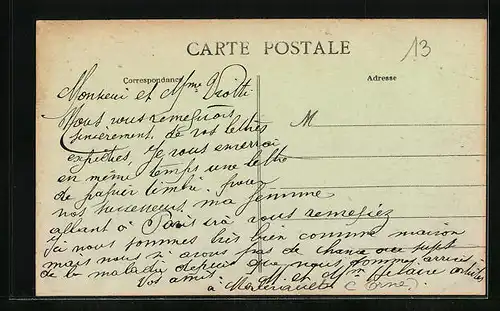 CARTE POSTALE
13
Correspondance
Adresse
M
Monsieur et Mme
Nous vous remercions
sincèrement, de vos lettres
expediées, je vous enverrai
en même temps une lettre
de papier timbré. pour
nos successeurs ma femme
allant à Paris ira vous remerciez
Ici nous sommes très bien comme maison
mais nous n'avons pas de chance au sujet
de la maladie depuis que nous sommes arrivés
Vos amis. M et Mme
à (Orne)